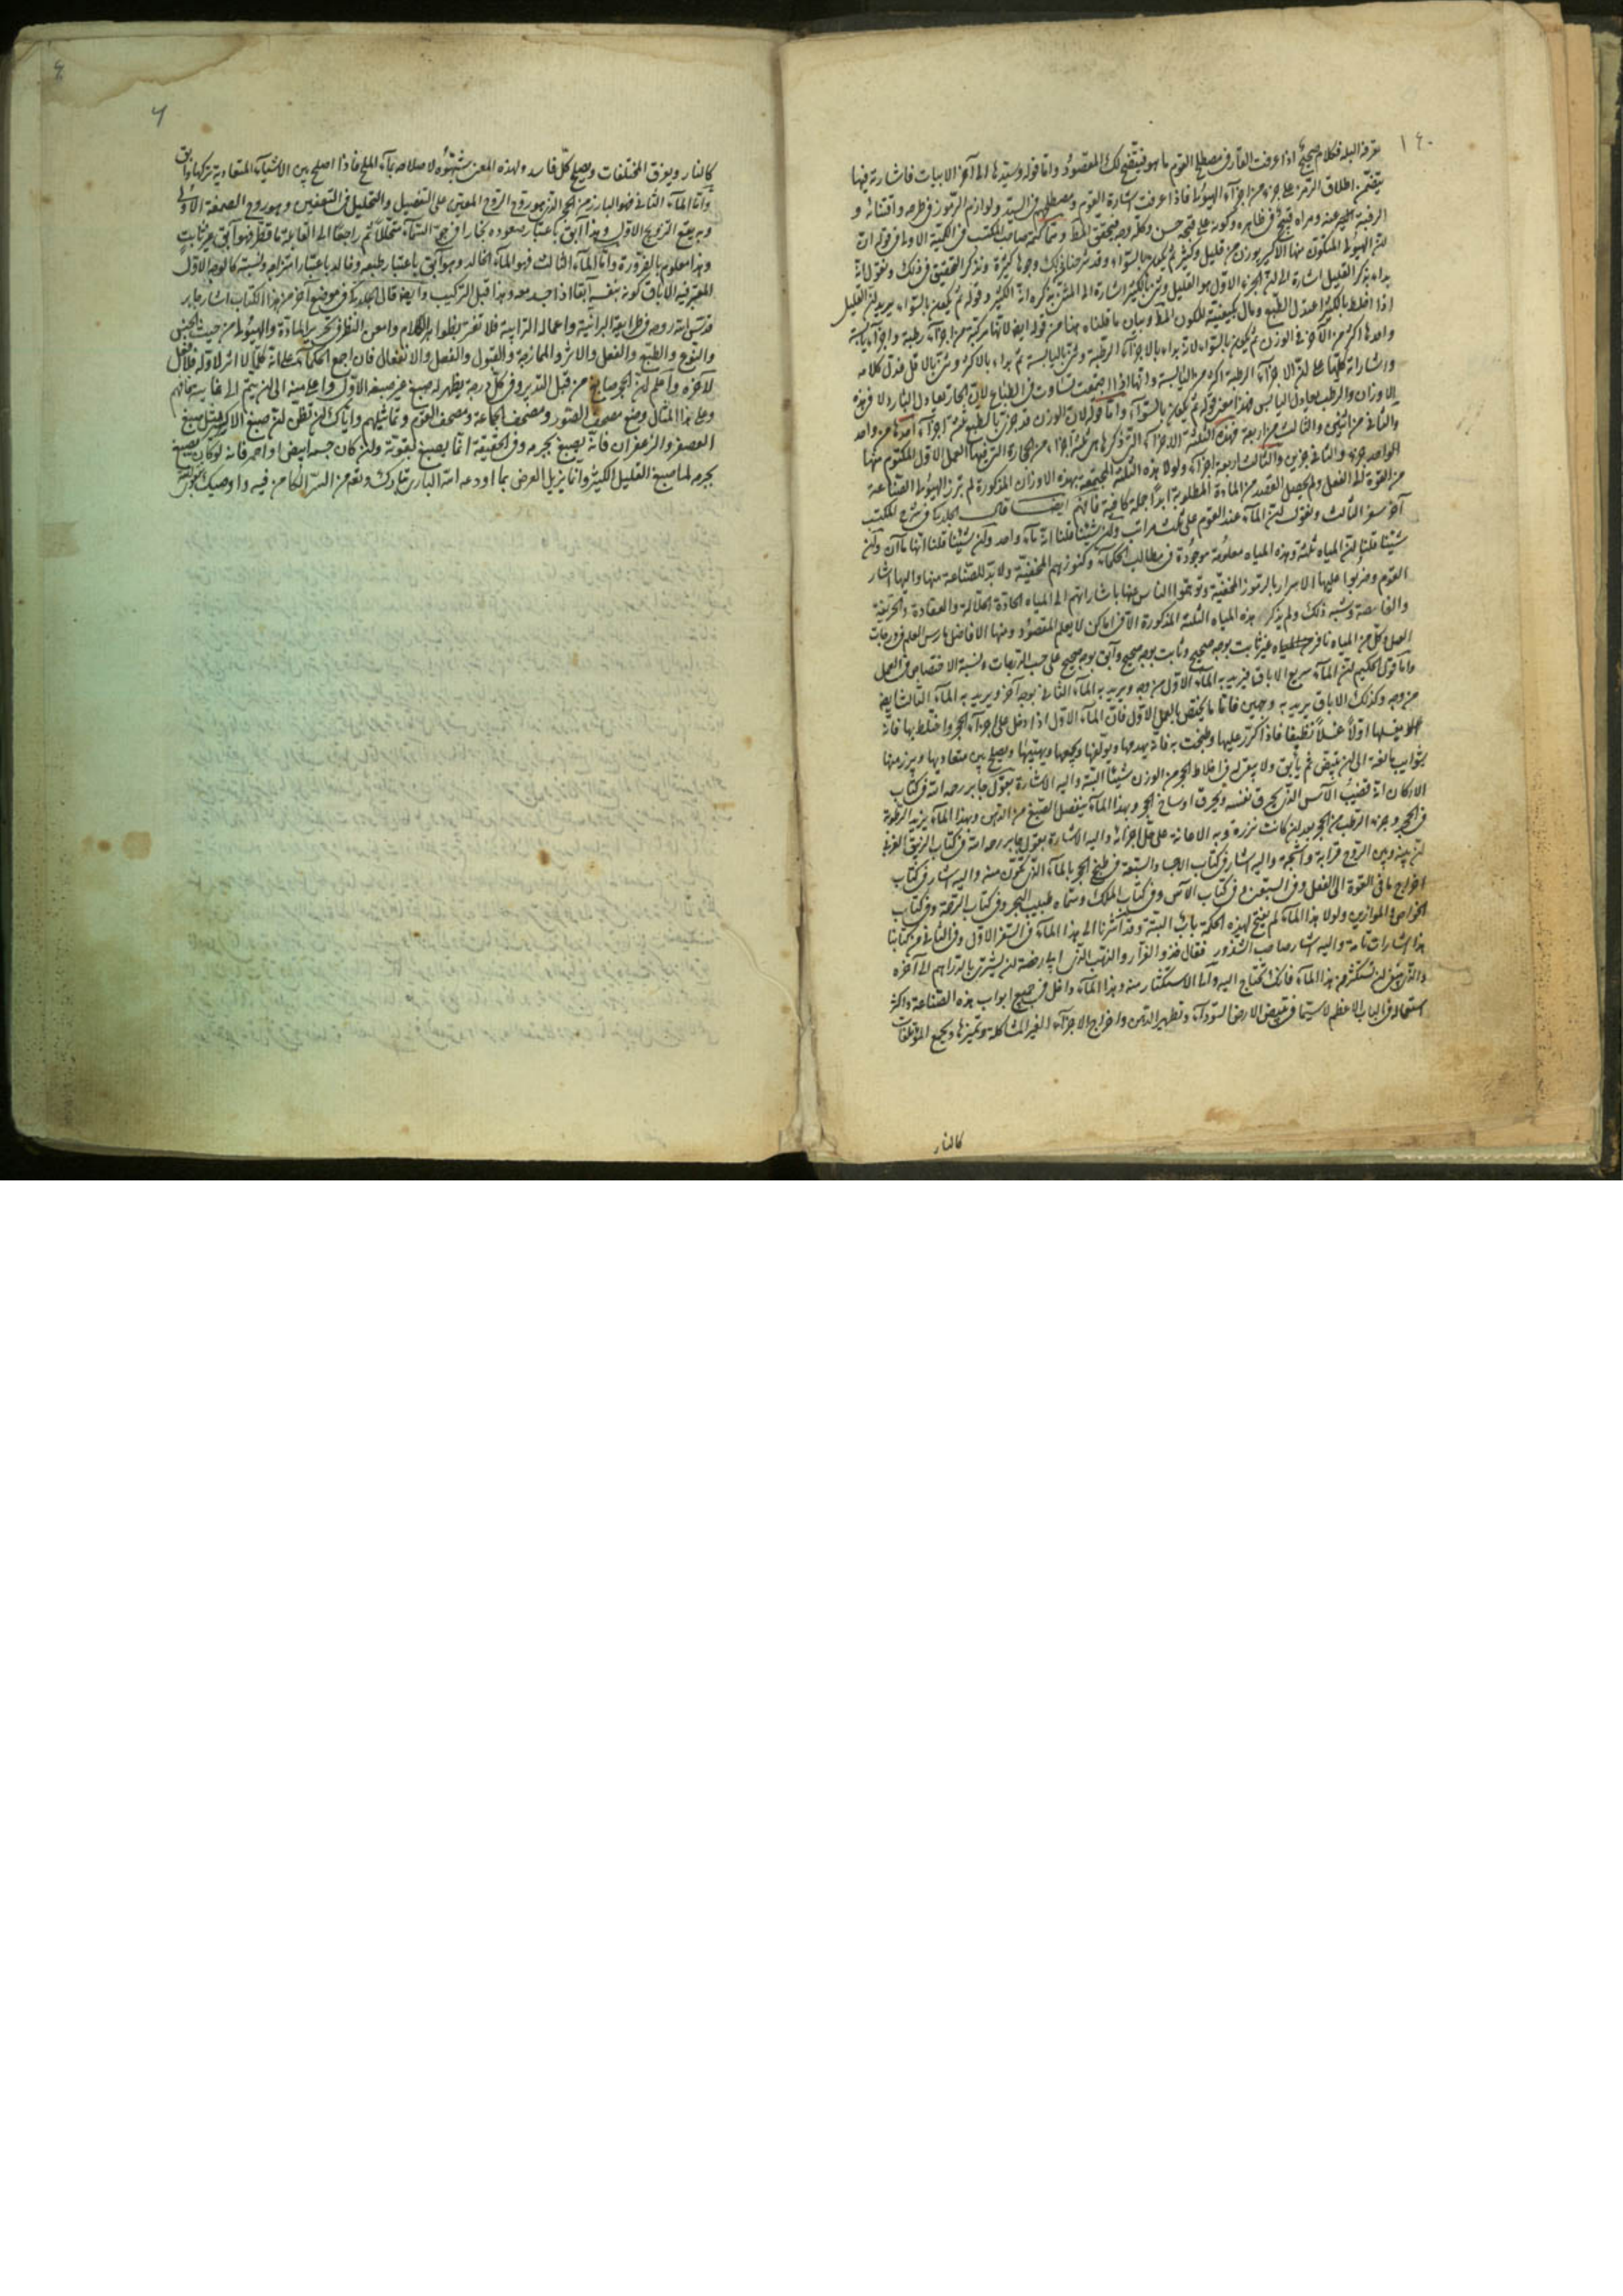 ١٤٠
يعرفه البله فكلام صحيح اذا عرفت الفأر في مصطلح القوم ما هو فيتضح لك المقصود واما قوله وسيتدها الى آخر الابيات فاشارته فيها
يتضمن اطلاق الرمز على جزء من اجزاء الهيولى فاذا عرفت اشارة القوم ومصطلحهم في السيد ولوازم الرموز في طرحه واقتنائه و
الرغبة عنه ومراه قبيح في ظاهره وكونه على قبحه حسن وكله وجه فيتحقق المط وتمامه صاحب المكتسب في الكمية الاولى في قوله ان
لان الهيولى المتكون منها الاكسير بوزن من قليل وكثير ثم يكون بالسواء وقد شرحنا في ذلك وجوها كثيرة ونذكر التحقيق في ذلك ونقول انه
بداء بذكر القليل اشارة الى ان الجزء الاول هو القليل وثنى بالكثير اشارة الى المثنى بذكره انه الكثير وقوله ثم يكون بالسواء يريد ان القليل
اذا اختلط بالكثير اعتدل الطبع ومال كيفيته للكون المط وبيان ما قلناه هنا من قوله ايضا لانها مركبة من اجزاء رطبة واجزاء يابسة
واحدها اكثر من الآخر في الوزن ثم يكون بالسواء لانه بداء بالاجزاء الرطبة وثنى باليابسة ثم بداء بالاكثر وثنى بالاقل فدل كلامه
واشاراته كلها على ان الاجزاء الرطبة اكثر من اليابسة وانها اذا اجتمعت تساوت في الطبائع لان البخار يعادل النار
بالاوزان والرطب يعادل اليابس فهذا معنى قوله ثم يكون بالسواء واما قوله لان الوزن قد جزئ بالطبع ثلثة اجزاء احدها من واحد
والثاني من اثنين والثالث من اربعة فهذه الثلثة الاجزاء التي ذكرها هي ثلثة اجزاء من الحجارة التي فيها العمل الاول المكتوم منها
الواحد جزء والثاني جزئين والثالث اربعة اجزاء ولولا هذه الثلثة المجتمعة بهذه الاوزان المذكورة لم تبرز الهيولى الصناعية
من القوة الى الفعل ولم يحصل القصد من المادة المطلوبة ابدا جملة كافية فافهم ايضا قال الجلدكي في شرح المكتسب
آخر سفر الثالث ونقول ان الماء عند القوم على ثلث مراتب ولئن شئنا قلنا انه ماء واحد ولئن شئنا قلنا انها ماآن ولئن
شئنا قلنا ان المياه ثلثة وهذه المياه معلومة موجودة في مطالب الحكماء وكنوزهم المخفية ولا بد للصناعة منها واليها اشار
القوم وضربوا عليها الاسرار بالرموز المخفية وتوهموا الناس عنها باشاراتهم الى المياه الحادة الحلالة والعقادة والحريفة
والغائصة وشبه ذلك ولم يذكر هذه المياه الثلثة المذكورة الا في اماكن لا يعلم المقصود ومنها الا فاضل مارس العلم في درجات
العمل وكل من المياه نافر غير ثابت بوجه صحيح وثابت بوجه صحيح وآبق بوجه صحيح على حسب الدرجات ونسبة الاختصاص في العمل
واما قول الحكيم ان الماء سريع الاباق فيريد به الماء الاول من وجه ويريد به الماء الثاني بوجه آخر ويريد به الماء الثالث ايضا
من وجه وكذلك الاباق يريد به وجهين فاما ما يختص بالعمل الاول فان الماء الاول اذا دخل على اجزاء الحجر واختلط بها فانه
يغسلها اولا غسلا نظيفا فاذا كرر عليها وطبخت به فانه يهدمها ويؤلفها ويجمعها ويهذبها ويصلح بين متعاديها ويبرز منها
شوائب بالغة الى ان يبيض ثم يأبق ولا يبقى له في اخلاط الحجر من الوزن شيئا البتة واليه الاشارة بقول جابر رحمه الله في كتاب
الاركان انه قضيب الآس الذي يحرق نفسه ويحرق اوساخ الحجر وبهذا الماء ينفصل الصبغ من الدهن وبهذا الماء يزيد الرطوبة
في الحجر وجزء الرطب من الحجر بعد ان كانت نزرة وبه الاعانة على حل اجزائه واليه الاشارة بقول جابر رحمه الله في كتاب الزيبق الغربي
ان بينه وبين الروح قرابة واشجة واليه اشار في كتاب الاحساء والسبعة في طبخ الحجر بالماء الذي تكون منه واليه اشار في كتاب
اخراج ما في القوة الى الفعل وفي السبعين وفي كتاب الآس وفي كتاب الملك وسماه طبيب الحجر وفي كتاب الرحمة وفي كتاب
الخواص والموازين ولولا هذا الماء لم يفتح لهذه الحكمة باب البتة وقد اشرنا الى هذا الماء في السفر الاول وفي الثاني من كتابنا
هذا اشارات تامة واليه اشار صاحب الشذور فقال خذوا الفرار والذهب الذي ابى رخصة ان يشترى بالدراهم الى آخره
والله ان تستكثر من هذا الماء فانك تحتاج اليه وآلى الاستكثار منه وهذا الماء داخل في جميع ابواب هذه الصناعة واكثر
استعماله في الباب الاعظم لا سيما في تبييض الارض السوداء وتطهير الدهن واخراج الاجزاء الغير المشاكلة وتمييزها ويجمع المؤتلفات
كالنار
٤
٦
كالنار ويفرق المختلفات ويصلح كل فاسد ولهذه المعنى شبهوه لاصلاحه بماء الملح فاذا اصلح بين الاشياء المتعادية تركها وابق
واما الماء الثاني فهو البارز من الحجر الذي هو روح الروح المعين على التفصيل والتحليل في التعفين وهو روح الصمغة الاولى
وبه يقع التزويج الاول وهذا آبق باعتبار صعوده بخارا في جو السماء متحللا ثم راجعا الى القابلة ماقطر فهو آبق غير ثابت
وهذا معلوم بالضرورة واما الماء الثالث فهو الماء الخالد وهو آبق باعتبار طبعه وخالد باعتبار امتزاجه ونسبته كالوجه الاول
المعتبر فيه الاباق كونه بنفسه آبقا اذا جسد معه وهذا قبل التركيب وايضا قال الجلدكي في موضع آخر من هذا الكتاب اشار جابر
قدس الله روحه في طرايقه البرانية واعماله الترابية فلا تغتر بظواهر الكلام وامعن النظر في تحرير المادة والهيولى من حيث الجنس
والنوع والطبع والفعل والاثر والممازجة والقبول والفصل والانفعال فان اجمع الحكماء على انه كلما لا اثر لاوله فلا فعل
لآخره واعلم ان الحجر صابغ من قبل التدبير وفي كل درجة يظهر له صبغ غير صبغه الاول واعلى منه الى ان يتم الى غاية تمامهم
وعلى هذا المثال وضع مصحف الصور ومصحف الجماعة ومصحف القوم وتماثيلهم واياك ان تظن ان صبغ الاكسير مثل صبغ
العصفر والزعفران فانه يصبغ بجرمه وفي الحقيقة انما يصبغ بقوته ولئن كان جسد ابيضا واحمر فانه لو كان يصبغ
بجرمه لما صبغ القليل الكثير وانما يزيل العرض بما اودعه الله الباري تبارك وتعالى من السر الكامن فيه واوصيك